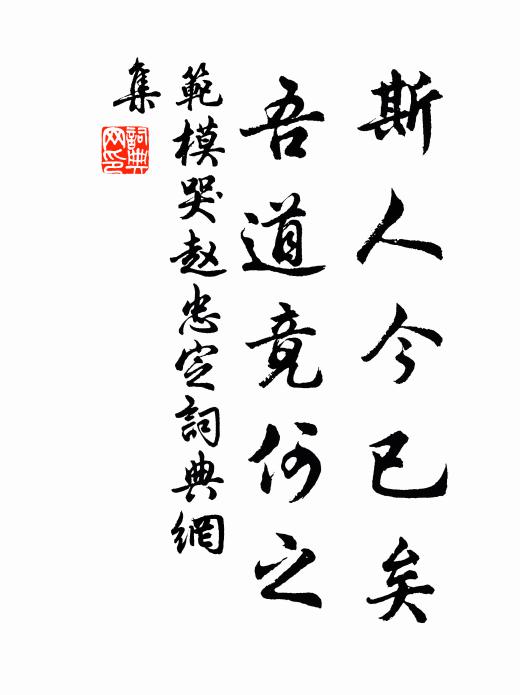 斯人今已矣
吾道竟何之
範模哭赵忠定詞典網
集
詞典
网印